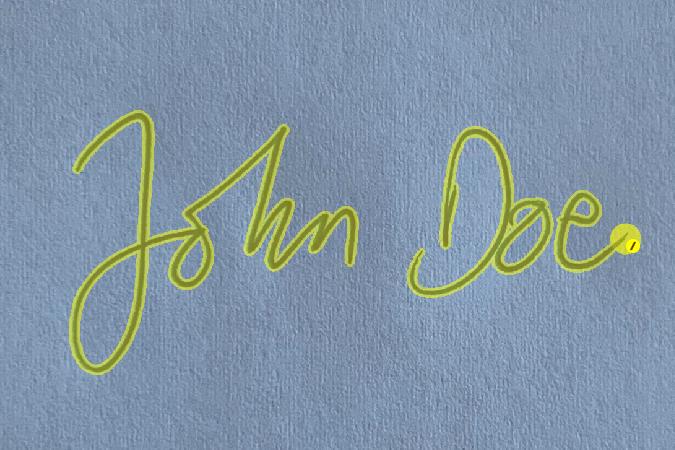 John Doe